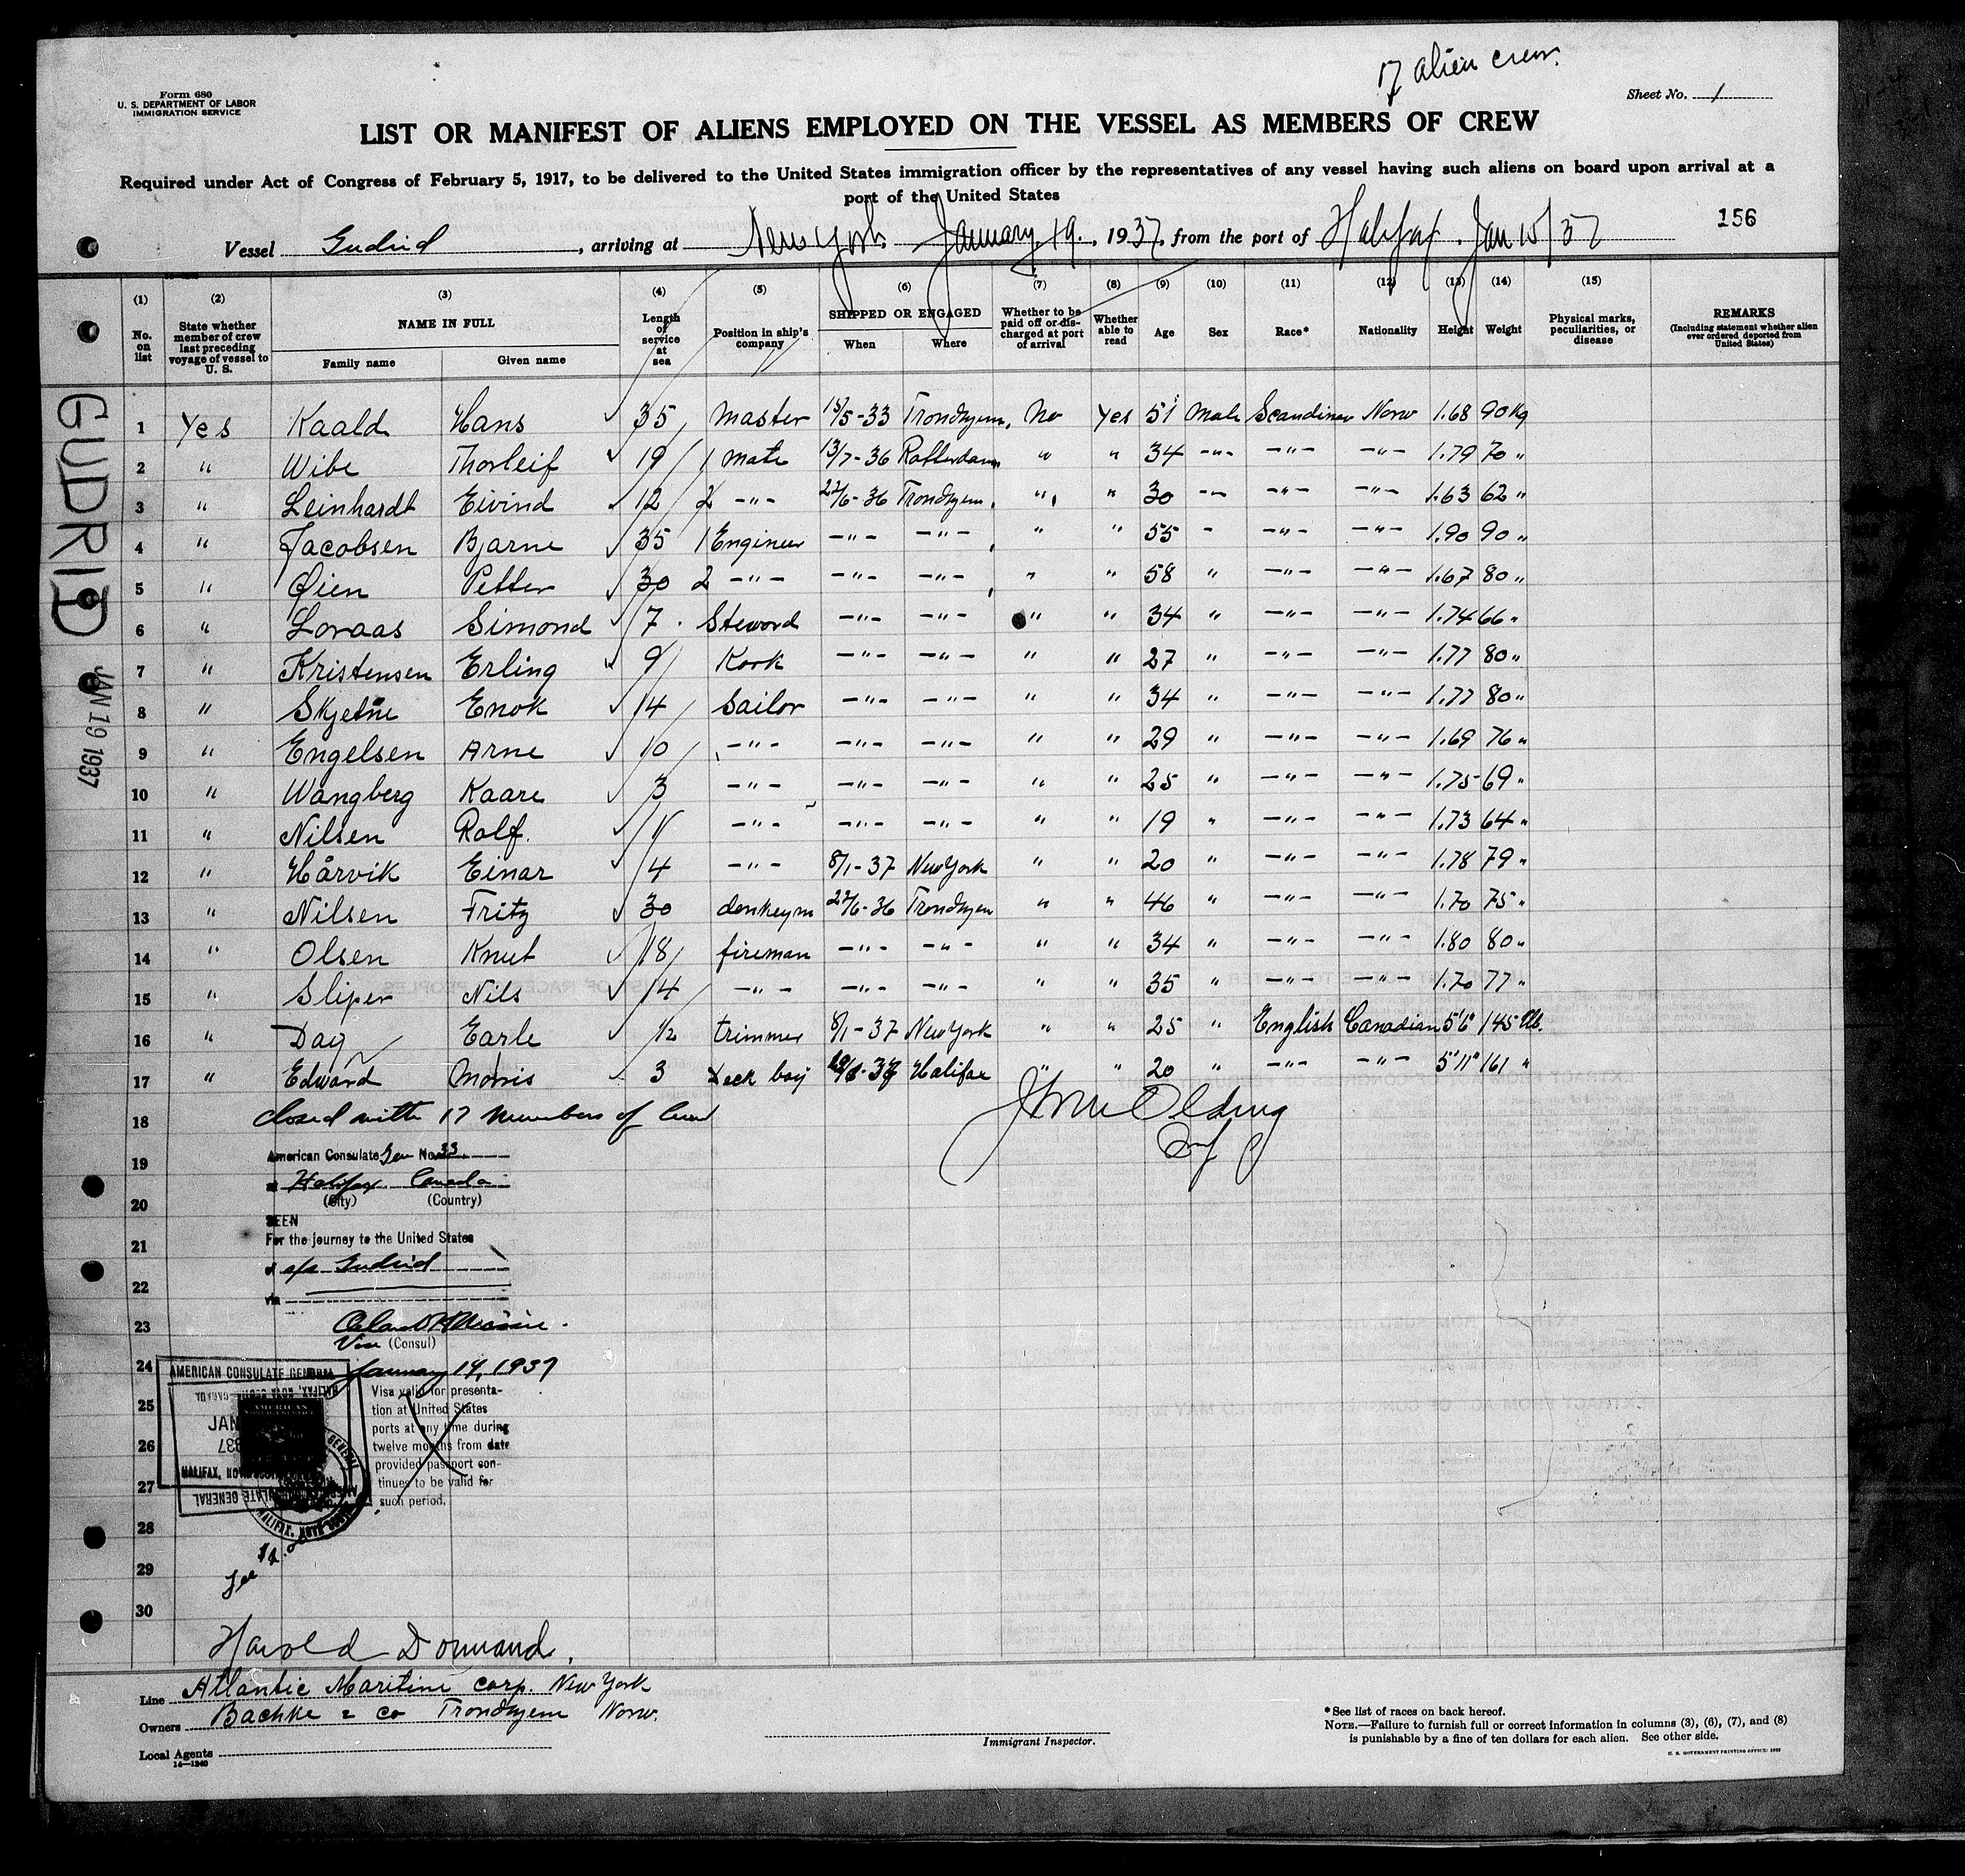 17 alien crew.
Form 680
U. S. DEPARTMENT OF LABOR
IMMIGRATION SERVICE
Sheet No. 1
LIST OR MANIFEST OF ALIENS EMPLOYED ON THE VESSEL AS MEMBERS OF CREW
Required under Act of Congress of February 5, 1917, to be delivered to the United States immigration officer by the representatives of any vessel having such aliens on board upon arrival at a
port of the United States
156
Vessel Gudrid, arriving at New York January 19, 1937, from the port of Halifax. Jan 15/37
(1) (2) (3) (4) (5) (6) (7) (8) (9) (10) (11) (12) (13) (14) (15)
No. on list
State whether member of crew last preceding voyage of vessel to U. S.
NAME IN FULL
Family name Given name
Length of service at sea
Position in ship's company
SHIPPED OR ENGAGED
When Where
Whether to be paid off or discharged at port of arrival
Whether able to read
Age Sex Race* Nationality Height Weight
Physical marks, peculiarities, or disease
REMARKS
(Including statement whether alien ever ordered deported from United States)
GUDRID
JAN 19 1937
1 Yes Kaald Hans 35 master 15/5-33 Trondhjem, No Yes 51 Male Scandinav Norw 1.68 90 Kg
2 " Wibe Thorleif 19 1 mate 13/7-36 Rotterdam " " 34 -"- -"- -"- 1.79 70 "
3 " Leinhardt Eivind 12 2 -"- 22/6-36 Trondhjem, " " 30 -"- -"- -"- 1.63 62 "
4 " Jacobsen Bjarne 35 1 Engineer -"- -"- " " 55 - -"- 1.90 90 "
5 " Øien Petter 30 2 -"- -"- -"- " " 58 " -"- -"- 1.67 80 "
6 " Loraas Simond 7 Steword -"- -"- " " 34 " -"- -"- 1.74 66 "
7 " Kristensen Erling 9 Kork -"- -"- " " 27 " -"- -"- 1.77 80 "
8 " Skjetne Enok 14 Sailor -"- -"- " " 34 " -"- -"- 1.77 80 "
9 " Engelsen Arne 10 -"- -"- -"- " " 29 " -"- -"- 1.69 76 "
10 " Wangberg Kaare 3 -"- -"- -"- " " 25 " -"- -"- 1.75 69 "
11 " Nilsen Rolf. -"- -"- -"- " " 19 " -"- -"- 1.73 64 "
12 " Hårvik Einar 4 -"- 8/1-37 New York " " 20 " -"- -"- 1.78 79 "
13 " Nilsen Fritz 30 donkeym 22/6-36 Trondhjem " " 46 " -"- -"- 1.70 75 "
14 " Olsen Knut 18 fireman -"- -"- " " 34 " -"- -"- 1.80 80 "
15 " Sliper Nils 14 -"- -"- -"- " " 35 " -"- -"- 1.70 77 "
16 " Day Earle 1/2 trimmer 8/1-37 New York " " 25 " English Canadian 5'6" 145 lb.
17 " Edward Morris 3 Deck boy Halifax " " 20 " -"- -"- 5'11" 161 "
18 Closed with 17 members of Crew
19 American Consulate Gen No. 33
Halifax Canada
20 (City) (Country)
SEEN
21 For the journey to the United States
s/s Gudrid
22
via
23
Vice (Consul)
24 January 14, 1937
25
26
27
28
29
30
Visa valid for presenta-
tion at United States
ports at any time during
twelve months from date
provided passport con-
tinues to be valid for
such period.
AMERICAN CONSULATE GENERAL
JAN
1937
HALIFAX, NOVA SCOTIA
Harold Dormand.
Line Atlantic Maritime Corp. New York
Owners Bachke & Co Trondhjem Norw.
Local Agents
14—1240
Immigrant Inspector.
*See list of races on back hereof.
NOTE.—Failure to furnish full or correct information in columns (3), (6), (7), and (8)
is punishable by a fine of ten dollars for each alien. See other side.
U. S. GOVERNMENT PRINTING OFFICE: